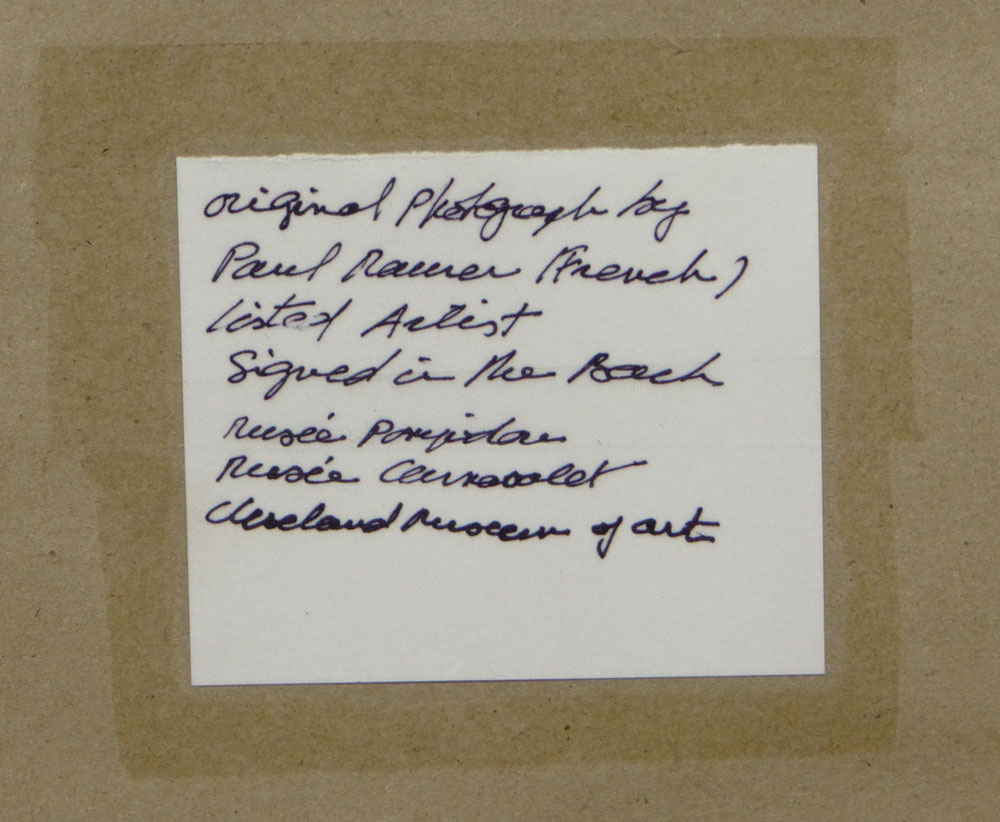 original Photograph by
Paul (French)
listed Artist
Signed in the Back
Musée
Musée
Cleveland Museum of art